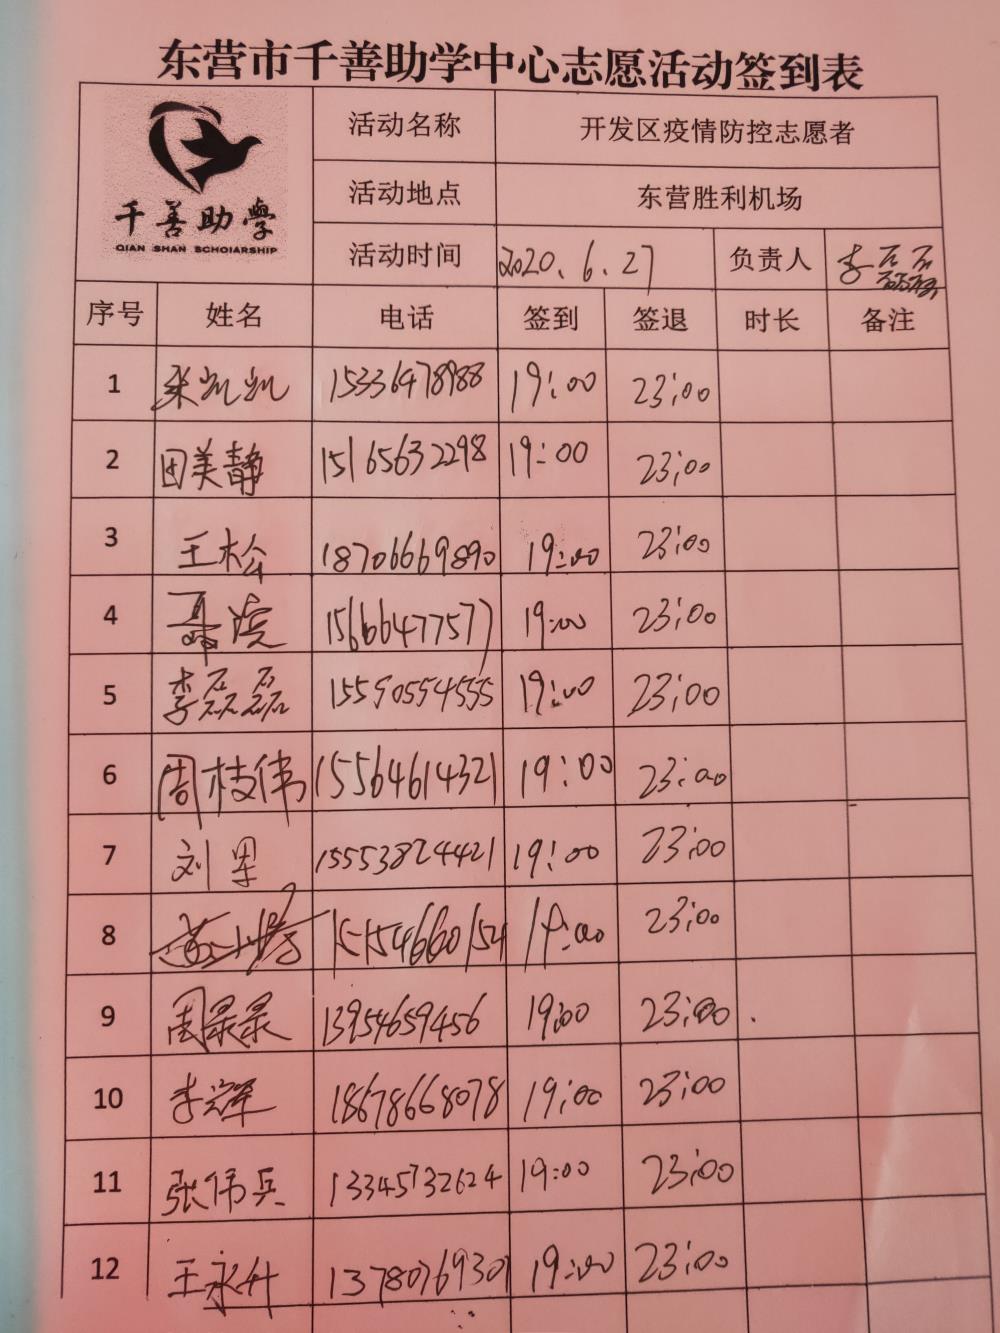 东营市千善助学中心志愿活动签到表
千善助學
QIAN SHAN SCHOIARSHIP
活动名称 开发区疫情防控志愿者
活动地点 东营胜利机场
活动时间 2020.6.27 负责人 李磊磊
序号 姓名 电话 签到 签退 时长 备注
1 凯凯 15336478988 19:00 23:00
2 田美静 15165632298 19:00 23:00
3 王松 18706669890 19:00 23:00
4 15666477577 19:00 23:00
5 李磊磊 15590554555 19:00 23:00
6 周枝伟 15564614321 19:00 23:00
7 刘军 15553824421 19:00 23:00
8 15154660154 19:00 23:00
9 周录录 13954659456 19:00 23:00
10 李辉 18678668078 19:00 23:00
11 张伟兵 13345732624 19:00 23:00
12 王永升 13780769307 19:00 23:00